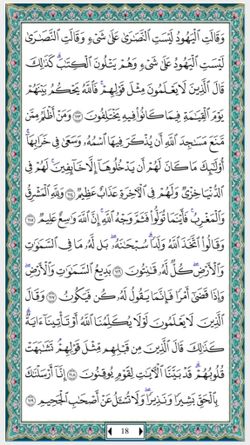 وَقَالَتِ الْيَهُودُ لَيْسَتِ النَّصَارَىٰ عَلَىٰ شَيْءٍ وَقَالَتِ النَّصَارَىٰ
لَيْسَتِ الْيَهُودُ عَلَىٰ شَيْءٍ وَهُمْ يَتْلُونَ الْكِتَابَ ۗ كَذَٰلِكَ
قَالَ الَّذِينَ لَا يَعْلَمُونَ مِثْلَ قَوْلِهِمْ ۚ فَاللَّهُ يَحْكُمُ بَيْنَهُمْ
يَوْمَ الْقِيَامَةِ فِيمَا كَانُوا فِيهِ يَخْتَلِفُونَ ١١٣ وَمَنْ أَظْلَمُ مِمَّنْ
مَنَعَ مَسَاجِدَ اللَّهِ أَنْ يُذْكَرَ فِيهَا اسْمُهُ وَسَعَىٰ فِي خَرَابِهَا ۚ
أُولَٰئِكَ مَا كَانَ لَهُمْ أَنْ يَدْخُلُوهَا إِلَّا خَائِفِينَ ۚ لَهُمْ فِي
الدُّنْيَا خِزْيٌ وَلَهُمْ فِي الْآخِرَةِ عَذَابٌ عَظِيمٌ ١١٤ وَلِلَّهِ الْمَشْرِقُ
وَالْمَغْرِبُ ۚ فَأَيْنَمَا تُوَلُّوا فَثَمَّ وَجْهُ اللَّهِ ۚ إِنَّ اللَّهَ وَاسِعٌ عَلِيمٌ ١١٥
وَقَالُوا اتَّخَذَ اللَّهُ وَلَدًا ۗ سُبْحَانَهُ ۖ بَلْ لَهُ مَا فِي السَّمَاوَاتِ
وَالْأَرْضِ ۖ كُلٌّ لَهُ قَانِتُونَ ١١٦ بَدِيعُ السَّمَاوَاتِ وَالْأَرْضِ ۖ
وَإِذَا قَضَىٰ أَمْرًا فَإِنَّمَا يَقُولُ لَهُ كُنْ فَيَكُونُ ١١٧ وَقَالَ
الَّذِينَ لَا يَعْلَمُونَ لَوْلَا يُكَلِّمُنَا اللَّهُ أَوْ تَأْتِينَا آيَةٌ ۗ
كَذَٰلِكَ قَالَ الَّذِينَ مِنْ قَبْلِهِمْ مِثْلَ قَوْلِهِمْ ۘ تَشَابَهَتْ
قُلُوبُهُمْ ۗ قَدْ بَيَّنَّا الْآيَاتِ لِقَوْمٍ يُوقِنُونَ ١١٨ إِنَّا أَرْسَلْنَاكَ
بِالْحَقِّ بَشِيرًا وَنَذِيرًا ۖ وَلَا تُسْأَلُ عَنْ أَصْحَابِ الْجَحِيمِ ١١٩
18